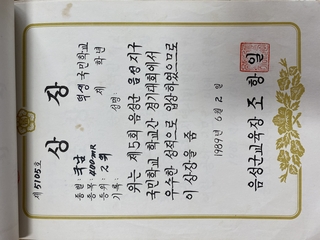 제 5105호
상 장
종별: 육상
종목: 400mR
등위: 2위
기록:
국민학교
제 학년
성명:
위는 제5회 음성군 음성지구
국민학교 학교간 경기대회에서
우수한 성적으로 입상하였으므로
이 상장을 줌
1989년 6월 2일
음성군교육장 조 항